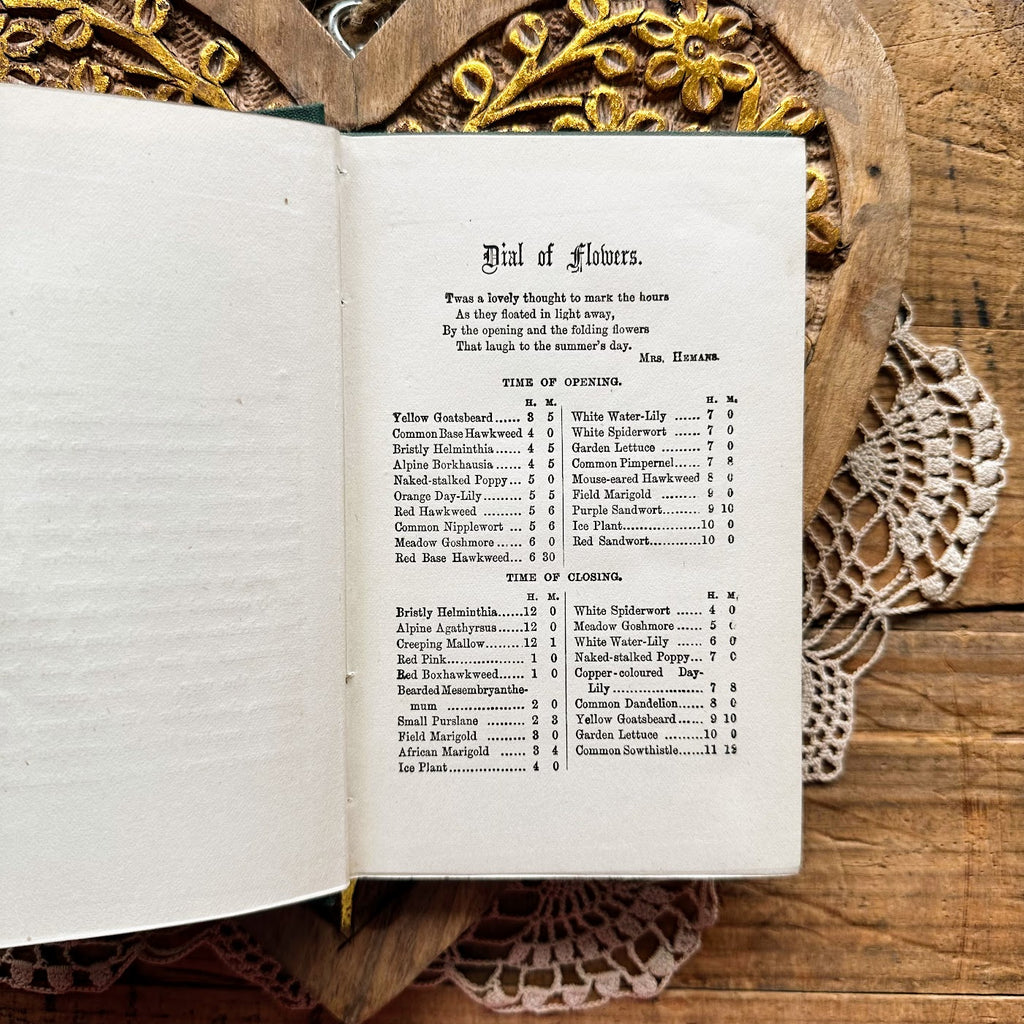 Dial of Flowers.
Twas a lovely thought to mark the hours
As they floated in light away,
By the opening and the folding flowers
That laugh to the summer's day.
Mrs. Hemans.
TIME OF OPENING.
H. M.
Yellow Goatsbeard...... 3 5
Common Base Hawkweed 4 0
Bristly Helminthia...... 4 5
Alpine Borkhausia...... 4 5
Naked-stalked Poppy... 5 0
Orange Day-Lily......... 5 5
Red Hawkweed ......... 5 6
Common Nipplewort ... 5 6
Meadow Goshmore ...... 6 0
Red Base Hawkweed... 6 30
H. M.
White Water-Lily ...... 7 0
White Spiderwort ...... 7 0
Garden Lettuce ......... 7 0
Common Pimpernel...... 7 8
Mouse-eared Hawkweed 8 0
Field Marigold ......... 9 0
Purple Sandwort......... 9 10
Ice Plant..................10 0
Red Sandwort............10 0
TIME OF CLOSING.
H. M.
Bristly Helminthia......12 0
Alpine Agathyrsus......12 0
Creeping Mallow.........12 1
Red Pink.................. 1 0
Red Boxhawkweed...... 1 0
Bearded Mesembryanthe-
mum .................. 2 0
Small Purslane ......... 2 3
Field Marigold ......... 3 0
African Marigold ...... 3 4
Ice Plant.................. 4 0
H. M.
White Spiderwort ...... 4 0
Meadow Goshmore ...... 5
White Water-Lily ...... 6 0
Naked-stalked Poppy... 7
Copper-coloured Day-
Lily ..................... 7 8
Common Dandelion...... 8 0
Yellow Goatsbeard...... 9 10
Garden Lettuce .........10 0
Common Sowthistle......11 12